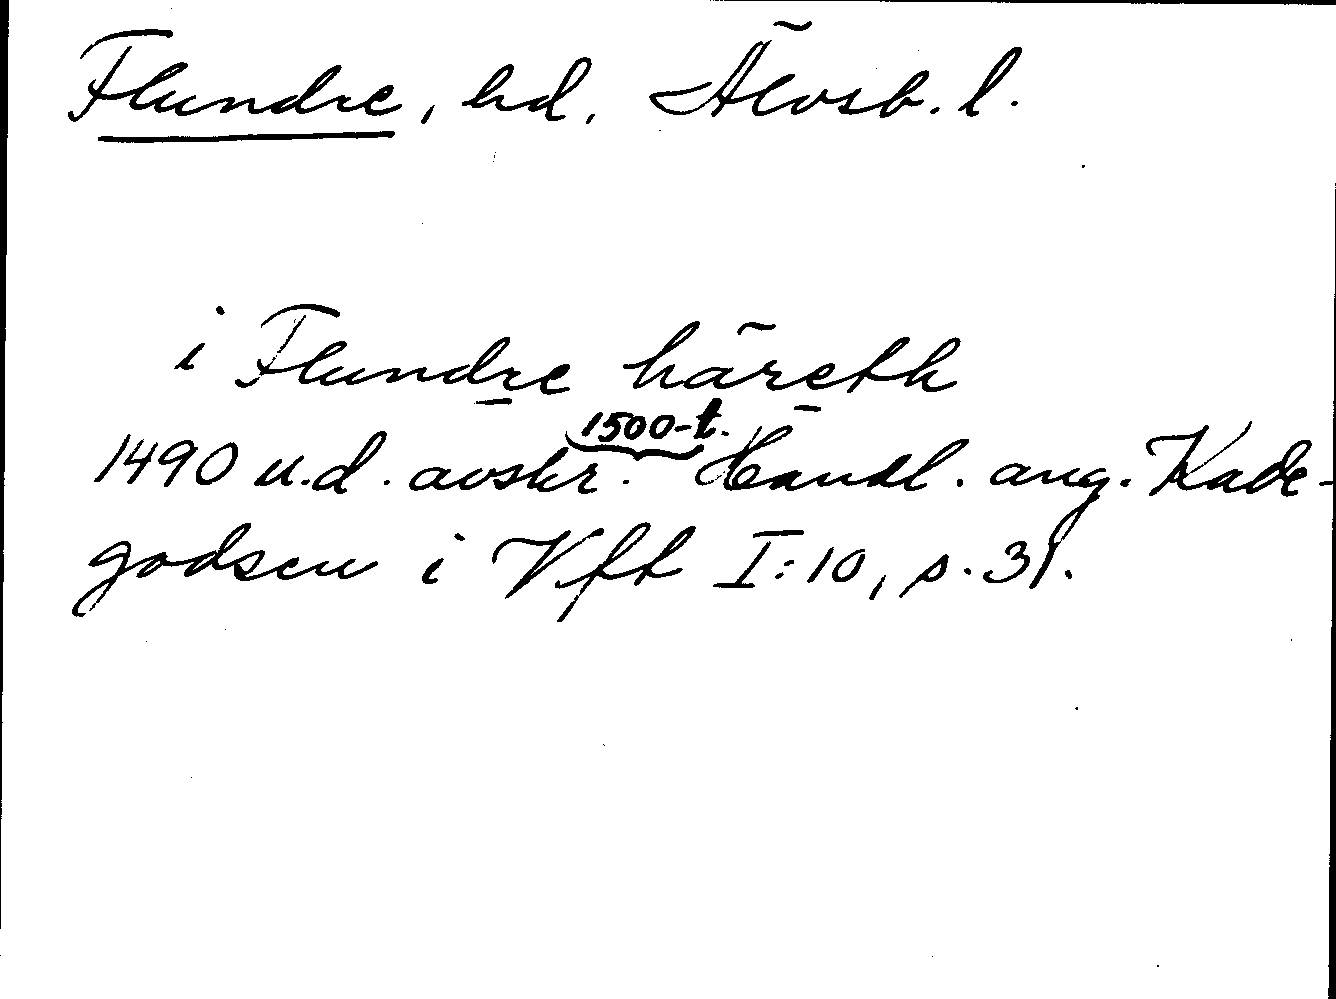 Flundre, hd, Älvsb. l.
i Flundre häreth
1500-t.
1490 u.d. avskr. Handl. ang. Kade-
godsen i Vft I:10, s. 31.